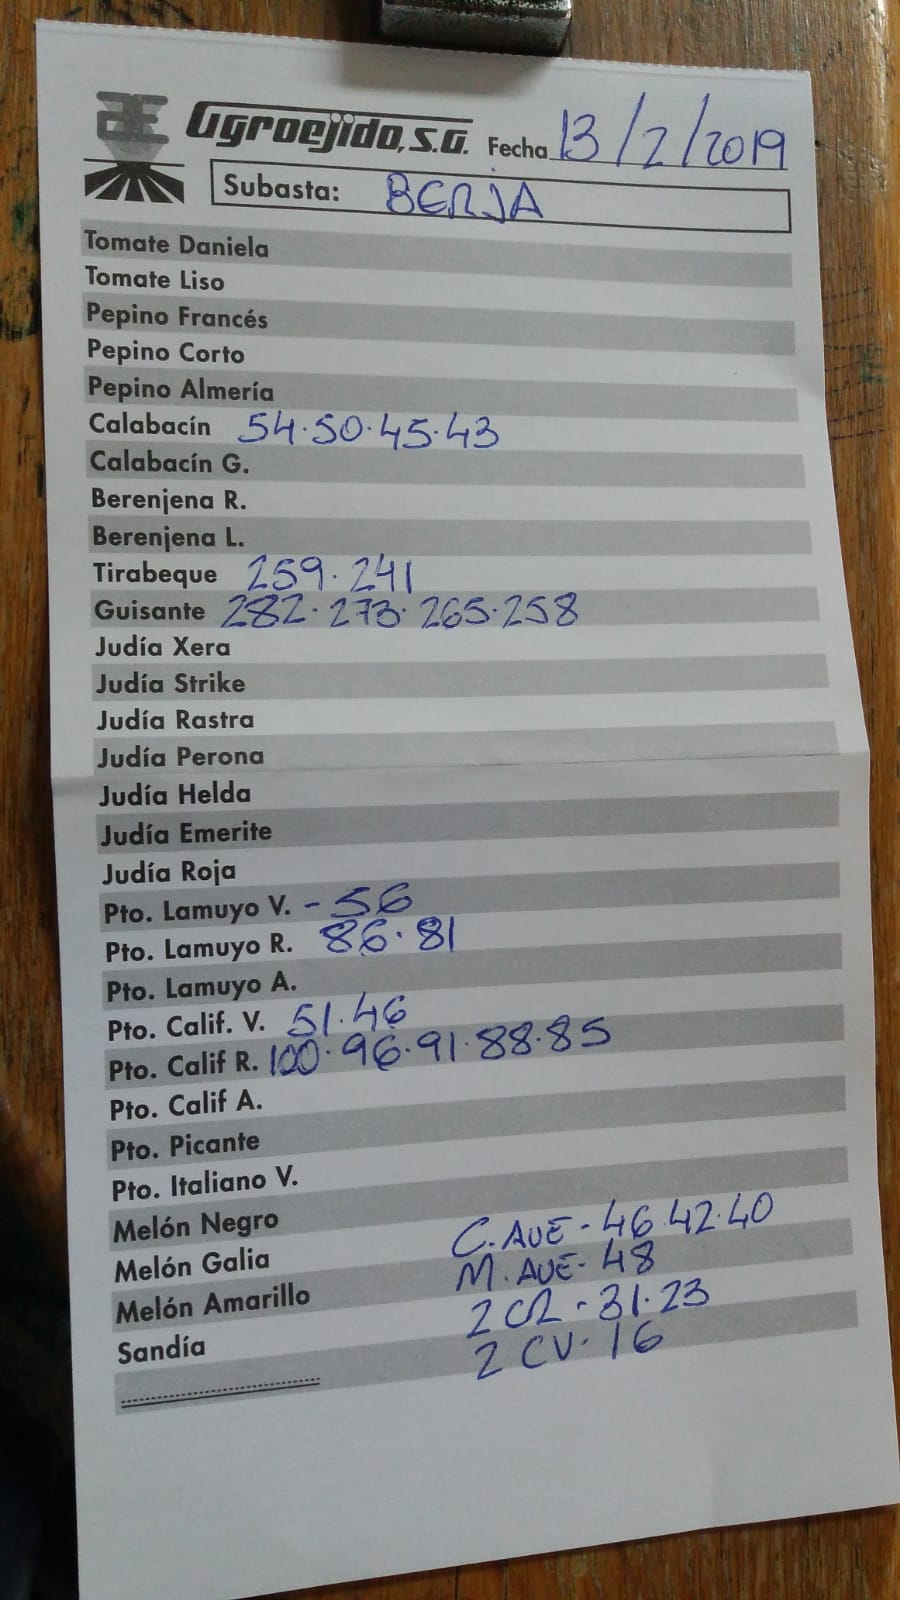 Agroejido, S.A. Fecha 13/2/2019
Subasta: BERJA
Tomate Daniela
Tomate Liso
Pepino Francés
Pepino Corto
Pepino Almería
Calabacín 54.50.45.43
Calabacín G.
Berenjena R.
Berenjena L.
Tirabeque 259.241
Guisante 282.273.265.258
Judía Xera
Judía Strike
Judía Rastra
Judía Perona
Judía Helda
Judía Emerite
Judía Roja
Pto. Lamuyo V. - 56
Pto. Lamuyo R. 86.81
Pto. Lamuyo A.
Pto. Calif. V. 51.46
Pto. Calif R. 100.96.91.88.85
Pto. Calif A.
Pto. Picante
Pto. Italiano V.
Melón Negro C. AUE - 46.42.40
Melón Galia M. AUE - 48
Melón Amarillo 2 CR - 31.23
Sandía 2 CV. 16